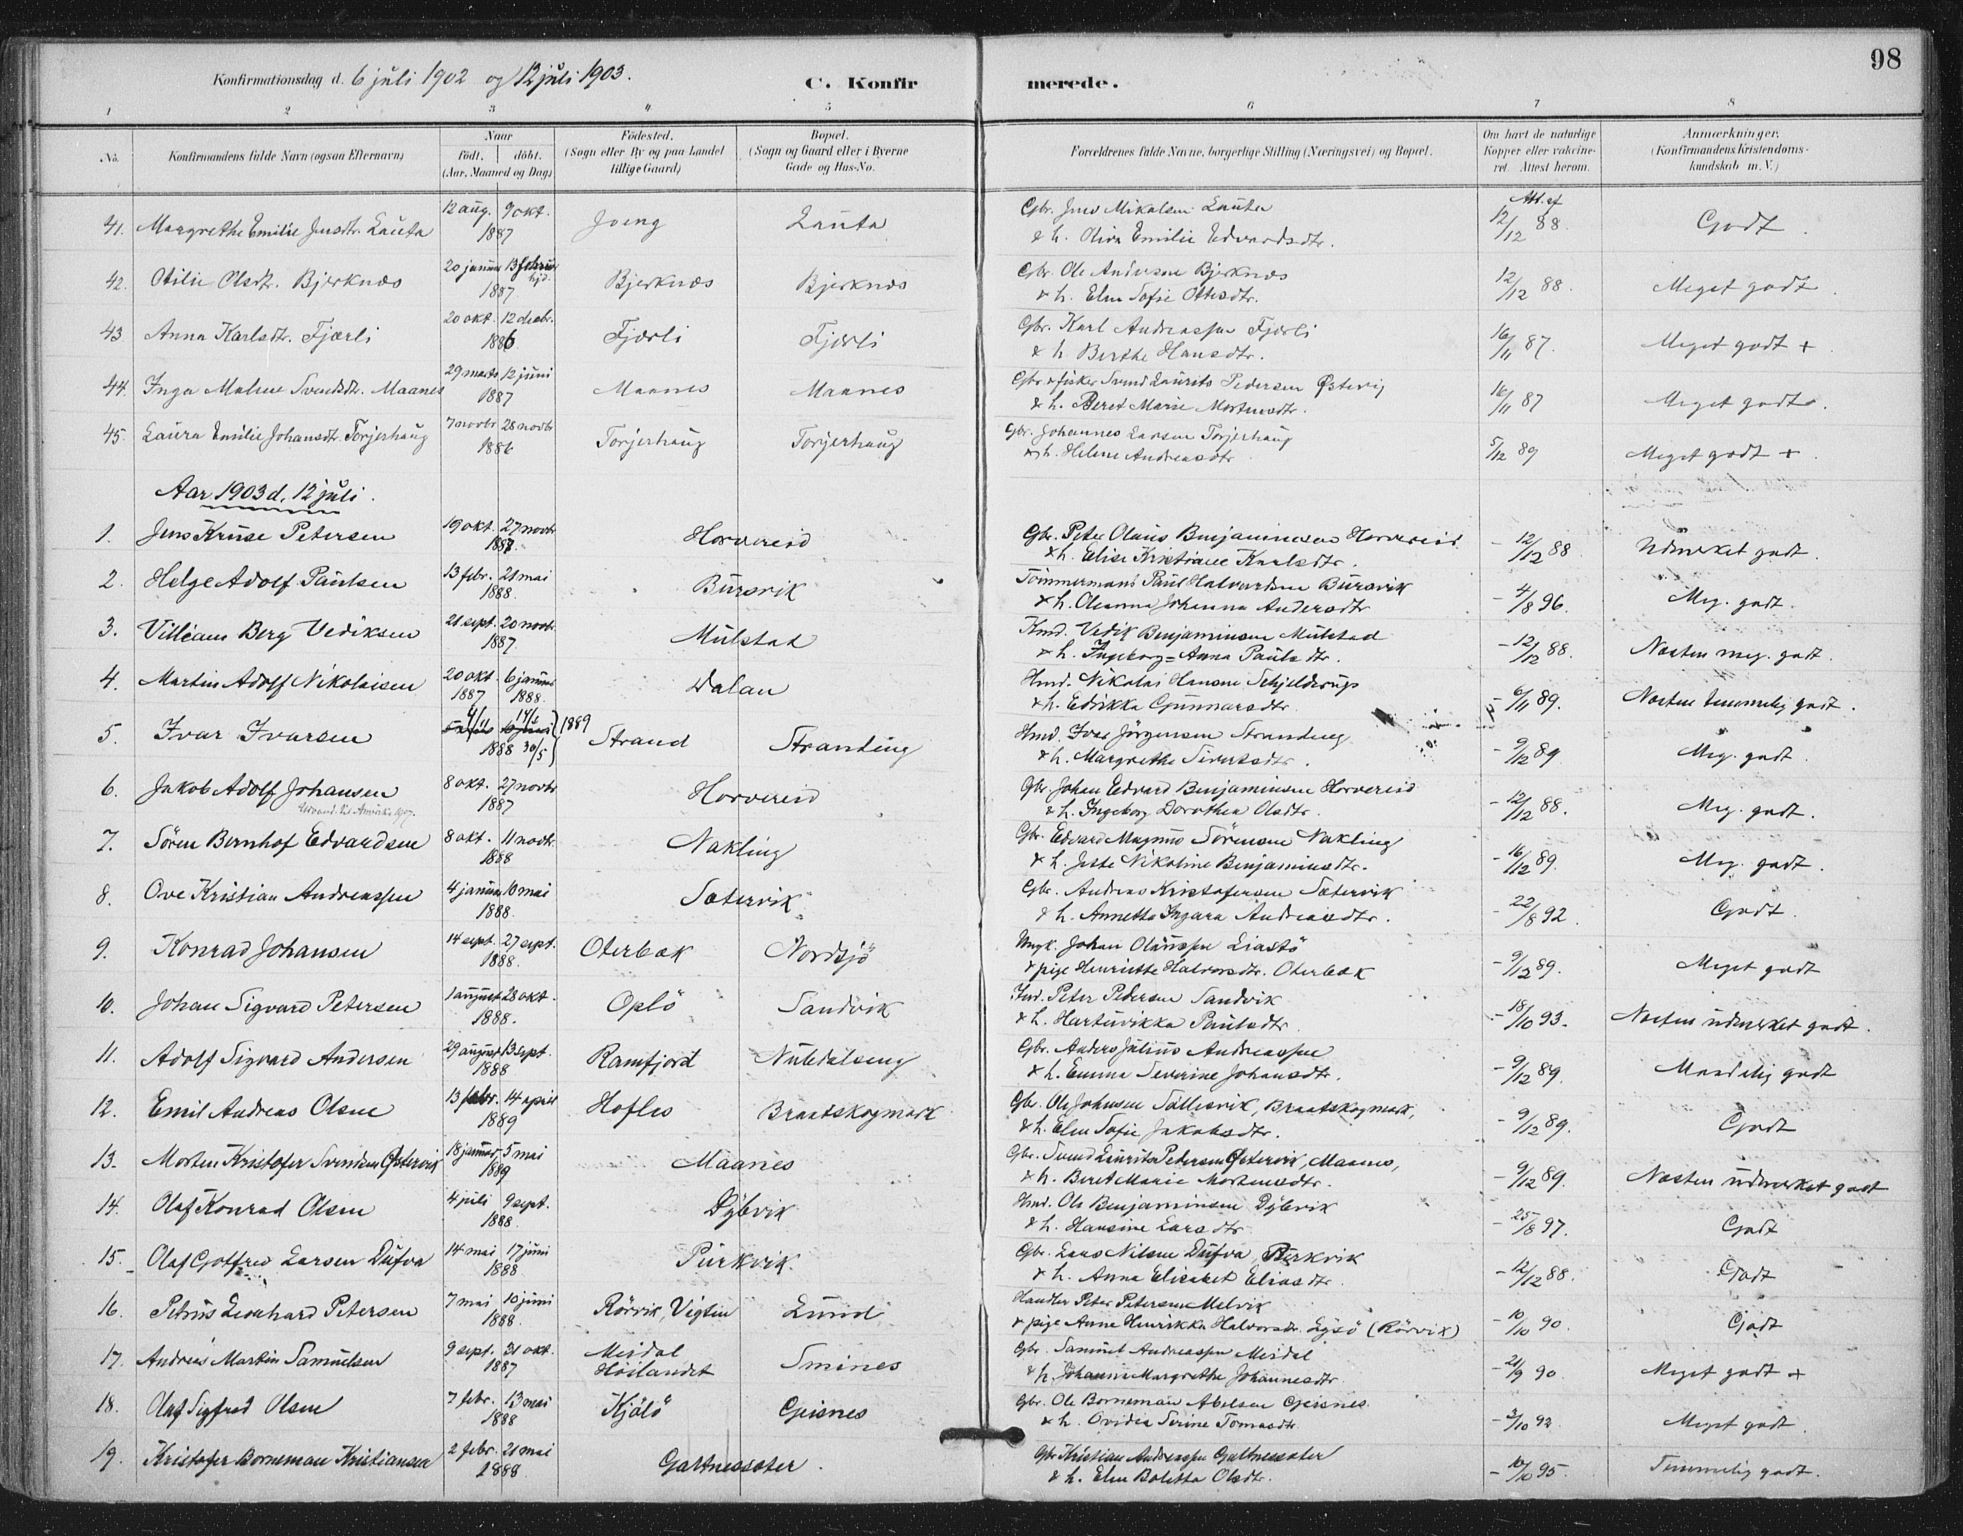 98
Konfirmationsdag d. 6 juli 1902 og 12 juli 1903.
C. Konfirmerede.
1 2 3 4 5 6 7 8
No. Konfirmandens fulde Navn (ogsaa Efternavn) Naar født. døbt. (Aar, Maaned og Dag) Fødested. (Sogn eller By og paa Landet tillige Gaard) Bopæl. (Sogn og Gaard eller i Byerne Gade og Hus-No. Forældrenes fulde Navne, borgerlige Stilling (Næringsvei) og Bopæl. Om havt de naturlige Kopper eller vakcineret. Attest herom. Anmærkninger. (Konfirmandens Kristendomskundskab m. V.)
41. Margrethe Emilie Jensdtr. Lauta 12 aug. 9 okt. 1887 Joeng Lauta Gbr. Jens Mikalsen Lauta & h. Oliva Emilie Edvardsdtr. Att. af 12/12 88. Godt.
42. Otilie Olsdtr. Bjerknæs 20 januar 13 februar hjd. 1887 Bjerknæs Bjerknæs Gbr. Ole Andersen Bjerknæs & h. Elen Sofie Ottesdtr. 12/12 88. Meget godt.
43 Anna Karlsdtr. Fjærli 20 okt. 12 decbr. 1886 Fjærli Fjærli Gbr. Karl Andreassen Fjærli & h. Berthe Hansdtr. 16/11 87. Meget godt +
44. Inga Malene Svendsdtr. Maanes 29 marts 12 juni 1887 Maanes Maanes Gbr. & fisker Svend Laurits Pedersen Østevig & h. Beret Marie Mortensdtr. 16/11 87 Meget godt.
45. Laura Emilie Johansdtr. Torjerhaug 7 novbr 28 novbr 1886 Torjerhaug Torjerhaug Gbr. Johannes Larsen Torjerhaug & h. Helene Andreasdtr 5/12 89 Meget godt +.
Aar 1903 d. 12 juli.
1. Jens Kruse Petersen 19 okt. 27 novbr 1887. Horvereid Gbr. Peter Olaus Benjaminsen Horvereid & h. Elise Kristiane Karlsdtr. - 12/12 88 Udmerket godt.
2. Helge Adolf Paulsen 13 febr. 21 mai 1888. Bursvik Tömmermand Paul Halvardsen Bursvik & h. Oleanna Johanna Andersdtr - 4/8 96. Meg. godt.
3. Villiam Berg Vediksen 21 sept. 20 novbr. 1887. Mulstad Kmd. Vedik Benjaminsen Mulstad & h. Ingeborg = Anna Paulsdtr. - 12/12 88. Næsten meg. godt.
4. Martin Adolf Nikolaisen 20 okt. 1887 6 januar 1888. Dalan Hmd. Nikolai Hansen Schjelderup & h. Edrikka Gunnarsdtr. - 6/11 89. Næsten temmelig godt.
5. Ivar Ivarsen 1888 30/5 1889 Strand Stranding Hmd. Ivar Jörgensen Stranding & h. Margrethe Sivertsdtr. - 9/12 89 Meg. godt.
6. Jakob Adolf Johansen 8 okt. 27 novbr 1887 Horvereid Gbr. Johan Edvard Benjaminsen Horvereid & h. Ingeborg Dorothea Olsdtr. - 12/12 88. Meg. godt.
7. Sören Bernhof Edvardsen 8 okt. 11 novbr. 1888 Nakling Gbr. Edvard Magnus Sörensen Nakling & h. Jette Nikoline Benjaminsdtr. - 16/12 89. Meg. godt.
8. Ove Kristian Andreassen 4 januar 10 mai 1888. Sætervik Gbr. Andreas Kristofersen Sætervik & h. Annetta Ingara Andreasdtr. - 22/8 92. Godt.
9. Konrad Johansen 14 sept. 27 sept. 1888. Oterbæk Nordsjö Ungk. Johan Olaussen Liastö & pige Henriette Halvorsdtr. Oterbæk - 9/12 89. Meget godt
10. Johan Sigvard Petersen 1 august 28 okt. 1888. Oplö Sandvik Ind. Peter Pedersen Sandvik & h. Hartuvikka Paulsdtr. - 18/10 93. Næsten udmerket godt.
11. Adolf Sigvard Andersen 29 august 13 sept. 1888 Ramfjord Nubdalseng Gbr. Anders Julius Andreassen & h. Emma Severine Johansdtr. - 9/12 89. Maadelig godt
12. Emil Andreas Olsen 13 febr. 14 april 1889 Hofles Braatskogmark Gbr. Ole Johnsen Sallesvik, Braatskogmark, & h. Elen Sofie Jakobsdtr. - 9/12 89. Godt
13. Morten Kristofer Svendsen Østervik 18 januar 5 mai 1889 Maanes Gbr. Svend Laurits Pedersen Østervik, Maanes, & h. Beret Marie Mortensdtr. - 9/12 89. Næsten udmerket godt
14. Olaf Konrad Olsen 4 juli 9 sept. 1888. Dybvik Hmd. Ole Benjaminsen Dybvik & h. Hansine Larsdtr - 25/8 97. Godt
15. Olaf Gotfred Larsen Dufva 14 mai 17 juni 1888. Purkvik Gbr. Lars Nilsen Dufva, Purkvik & h. Anna Elisabet Eliasdtr. - 12/12 88. Godt
16. Petrus Leonhard Petersen 7 mai 10 juni 1888. Rörvik, Vigten Lund Handler Peter Petersen Melvik & pige Anne Henrikka Halvorsdtr. Eysö (Rörvik) - 10/10 90. Godt
17. Andreas Martin Samuelsen 9 sept. 21 okt. 1887 Meidal Höilandet Smines Gbr. Samuel Andreassen Meidal & h. Johanna Margrethe Johannesdtr - 21/9 90. Meget godt +
18. Olaf Sigfred Olsen 7 febr. 13 mai 1888 Kjölö Geisnes Gbr. Ole Borneman Abelsen Geisnes & h. Ovidia Serine Tomasdtr. - 3/10 92. Meget godt.
19. Kristofer Borneman Kristiansen 2 febr. 21 mai 1888 Galtnessæter. Gbr Kristian Andreassen Galtnessæter & h. Elen Boletta Olsdtr. - 10/10 95. Temmelig godt.